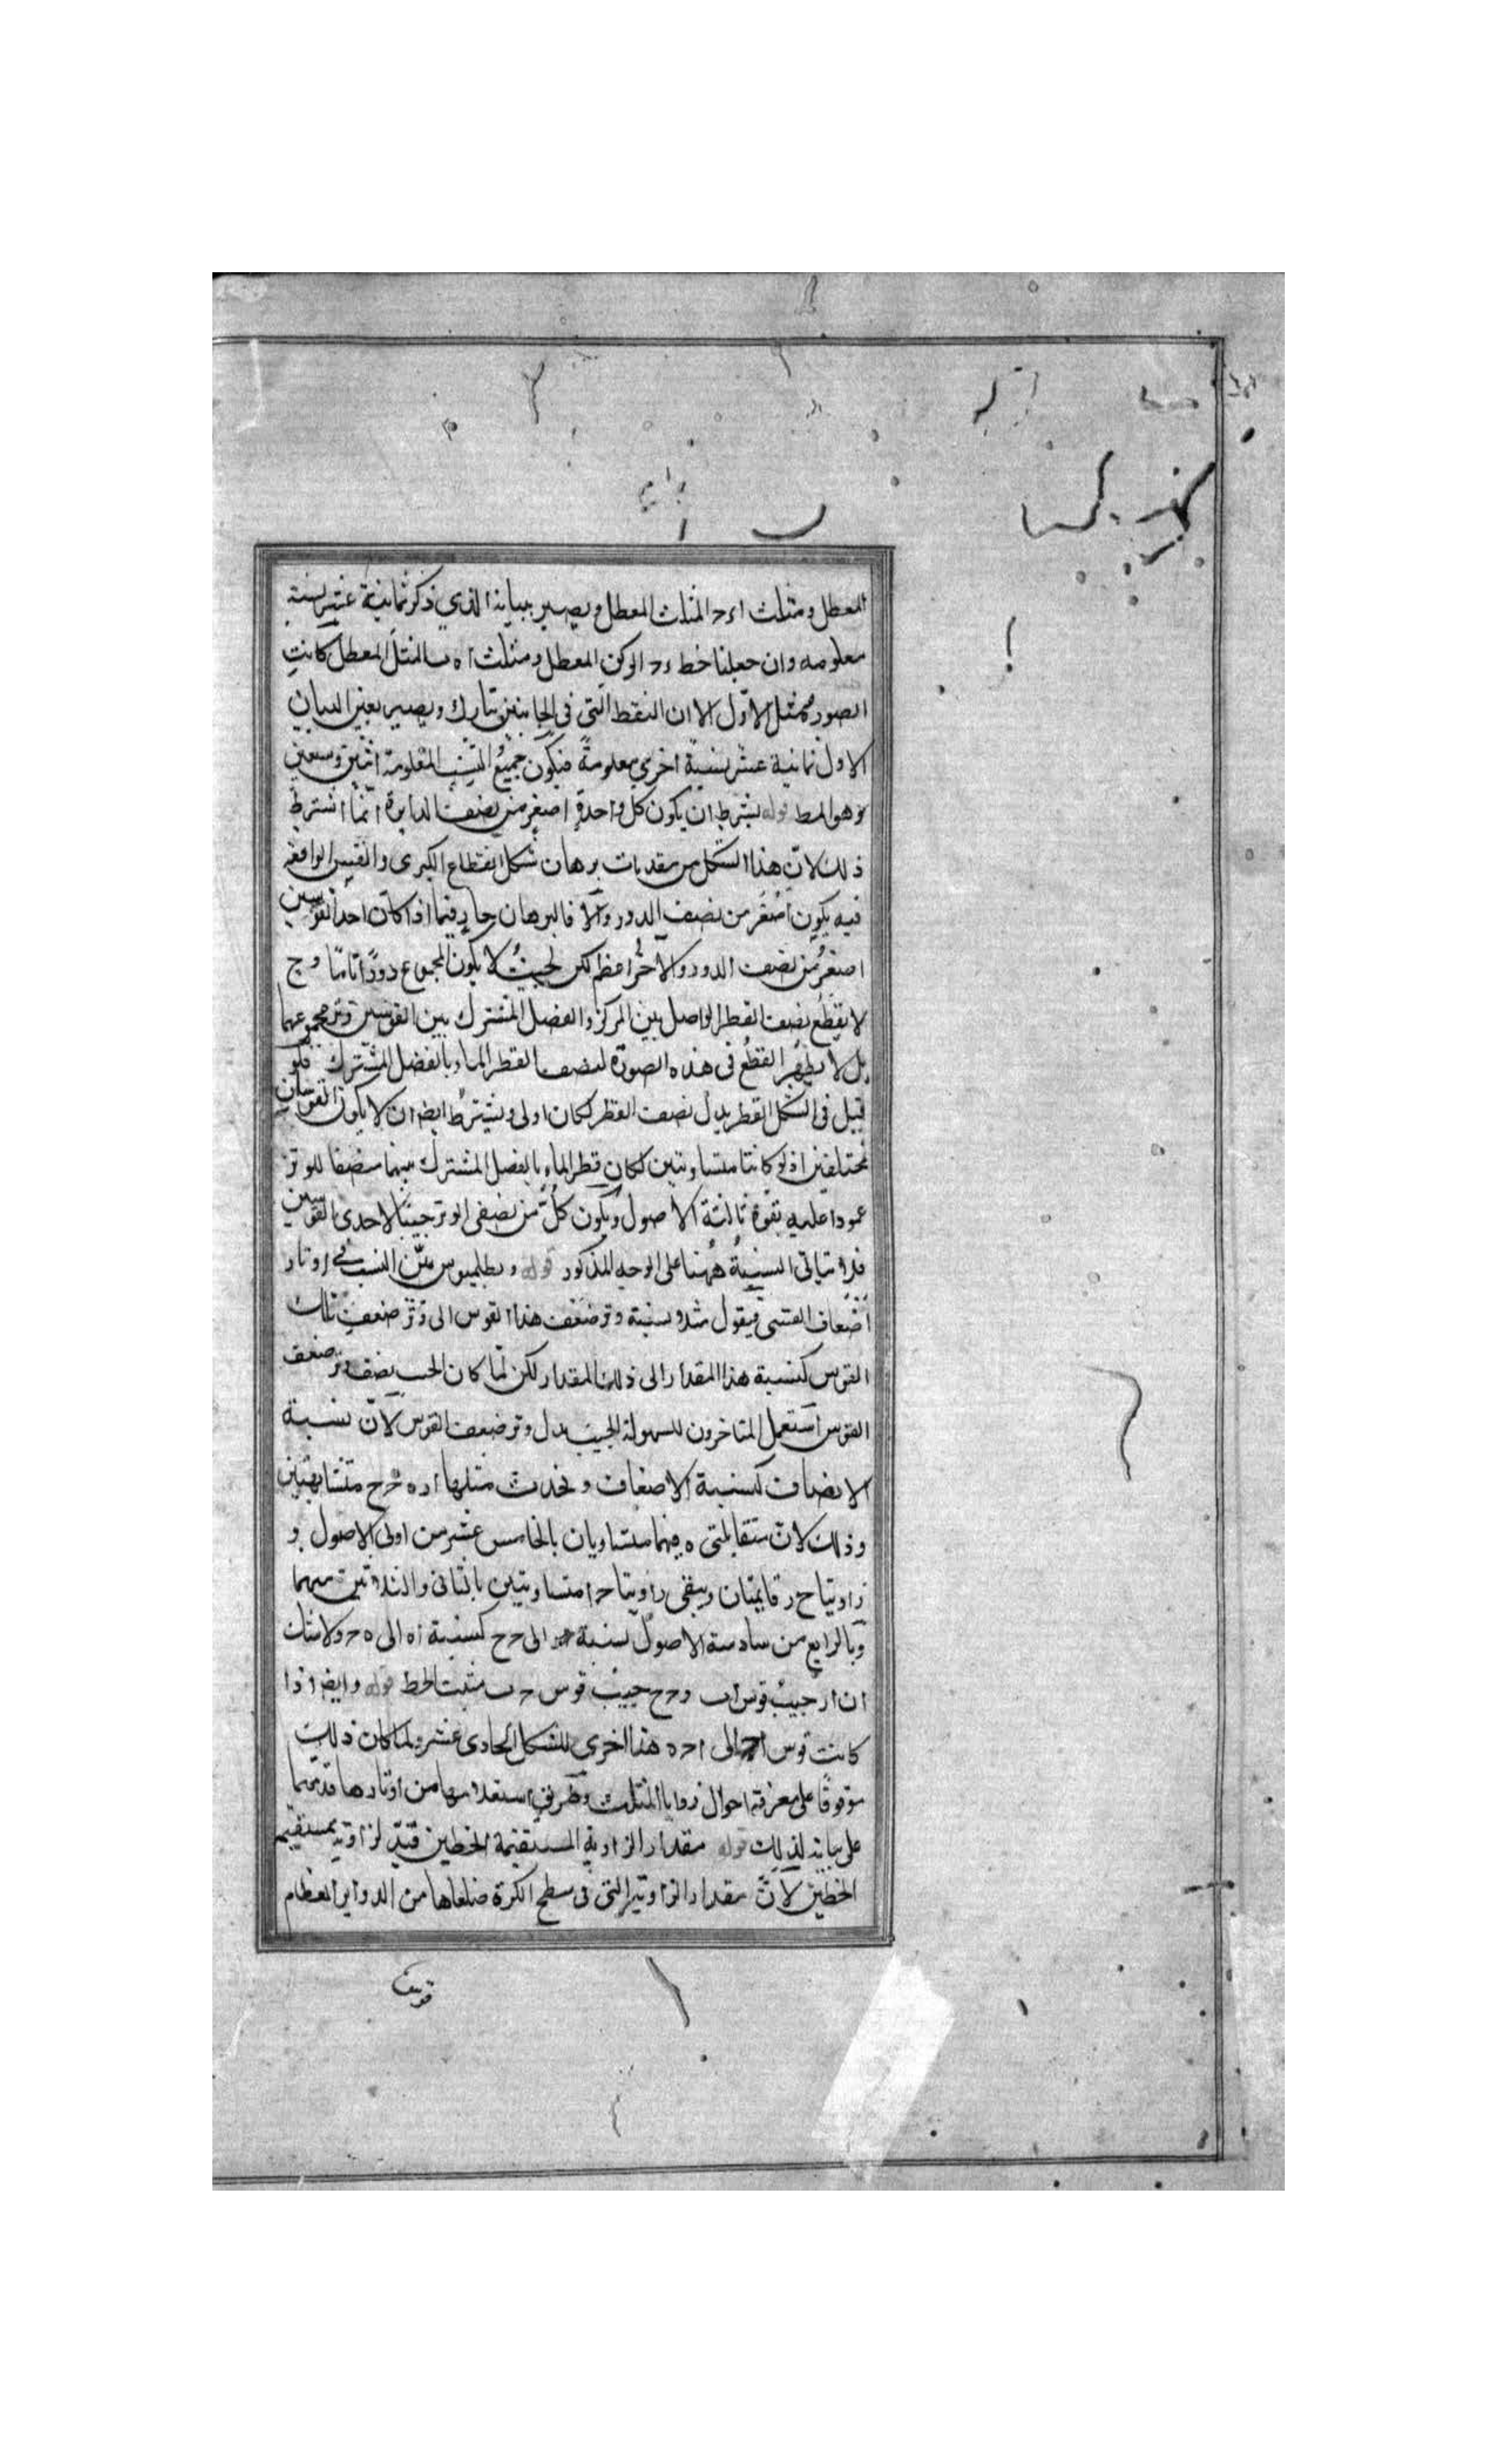 المعطل ومثلث اءح المثلث المعطل ويصير ببيانه الذي ذكر ثمانية عشر نسبة
معلومه وان جعلنا خط ءح الركن المعطل ومثلث اه ب المثلث المعطل كانت
الصور كمثل الاوّل الا ان النقط التى فى الجانبين تبارك ويصير بعين البيان
الاول ثمانية عشر نسبة اخرى معلومةً فيكون جميعُ النسب المعلومة اثنين وسبعين
وهو المط قوله بشرط ان يكون كل واحدة اصغر من نصف الدايرة انّما اشترط
ذلك لانّ هذا الشكل من مقدمات برهان شكل القطاع الكبرى والقسى الواقعة
فيه يكون اصْغَر من نصف الدور والّا فالبرهان جارٍ فيما اذا كان احد القوسين
اصغرُ من نصف الدور والاخرُ اعظم لكن بحيثُ لا يكون المجموع دورًا تامًا وح
لا يقطع نصف القطر الواصل بين المركز والفصل المشترك بين القوسين وتر مجموعهما
بل لا يظهر القطعُ فى هذه الصورة لنصف القطر المار بالفصل المشترك فلو
قيل فى الشكل القطر بدل نصف القطر لكان اولى ويشترط ايضا ان لا يكون القوسان
مختلفتين اذ لو كانتا متساويتين لكان قطر المار بالفصل المشترك بينهما منصفا للوتر
عمودا عليه بقوة ثالثة الاصول ويكون كلٌّ من نصفى الوتر جيبًا لاحدى القوسين
فلا يتأتى النسبةُ ههنا على الوجه المذكور قوله وبطلميوس بيّن النسب فى اوتار
اضعاف القسى فيقول مثلا نسبة وتر ضعف هذا القوس الى وتر ضعف تلك
القوس كنسبة هذا المقدار الى ذلك المقدار لكن لمّا كان الجيب نصف وتر ضعف
القوس استعمل المتاخرون للسهولة الجيب بدل وتر ضعف القوس لانّ نسبة
الانصاف كنسبة الاضعاف ويحدث مثلثا ار ه ح متشابهتين
وذلك لانّ متقابلتى ه فيهما متساويان بالخامس عشر من اولى الاصول و
زاويتا ح ر قايمتان ويبقى زاويتا ح ا متساويتين بالثانى والثلاثين منهما
وبالرابع من سادسة الاصول نسبة الى ح ح كنسبة اه الى ه ح ولا شك
ان ار جيبُ قوس اب و ح ح جيبُ قوس ح ب فثبت الخط قوله وايضا اذا
كانت قوس اح الى اح ه هذا اخرى للشكل الحادى عشر ولما كان ذلك
موقوفًا على معرفة احوال زوايا المثلث وطريق استعلامها من اوتارها قدمهما
على بيانه لذلك قوله مقدار الزاوية المستقيمة الخطين قيّد الزاوية بمستقيمة
الخطين لانّ مقدار الزاوية التى فى سطح الكرة ضلعاها من الدواير العظام
قوس